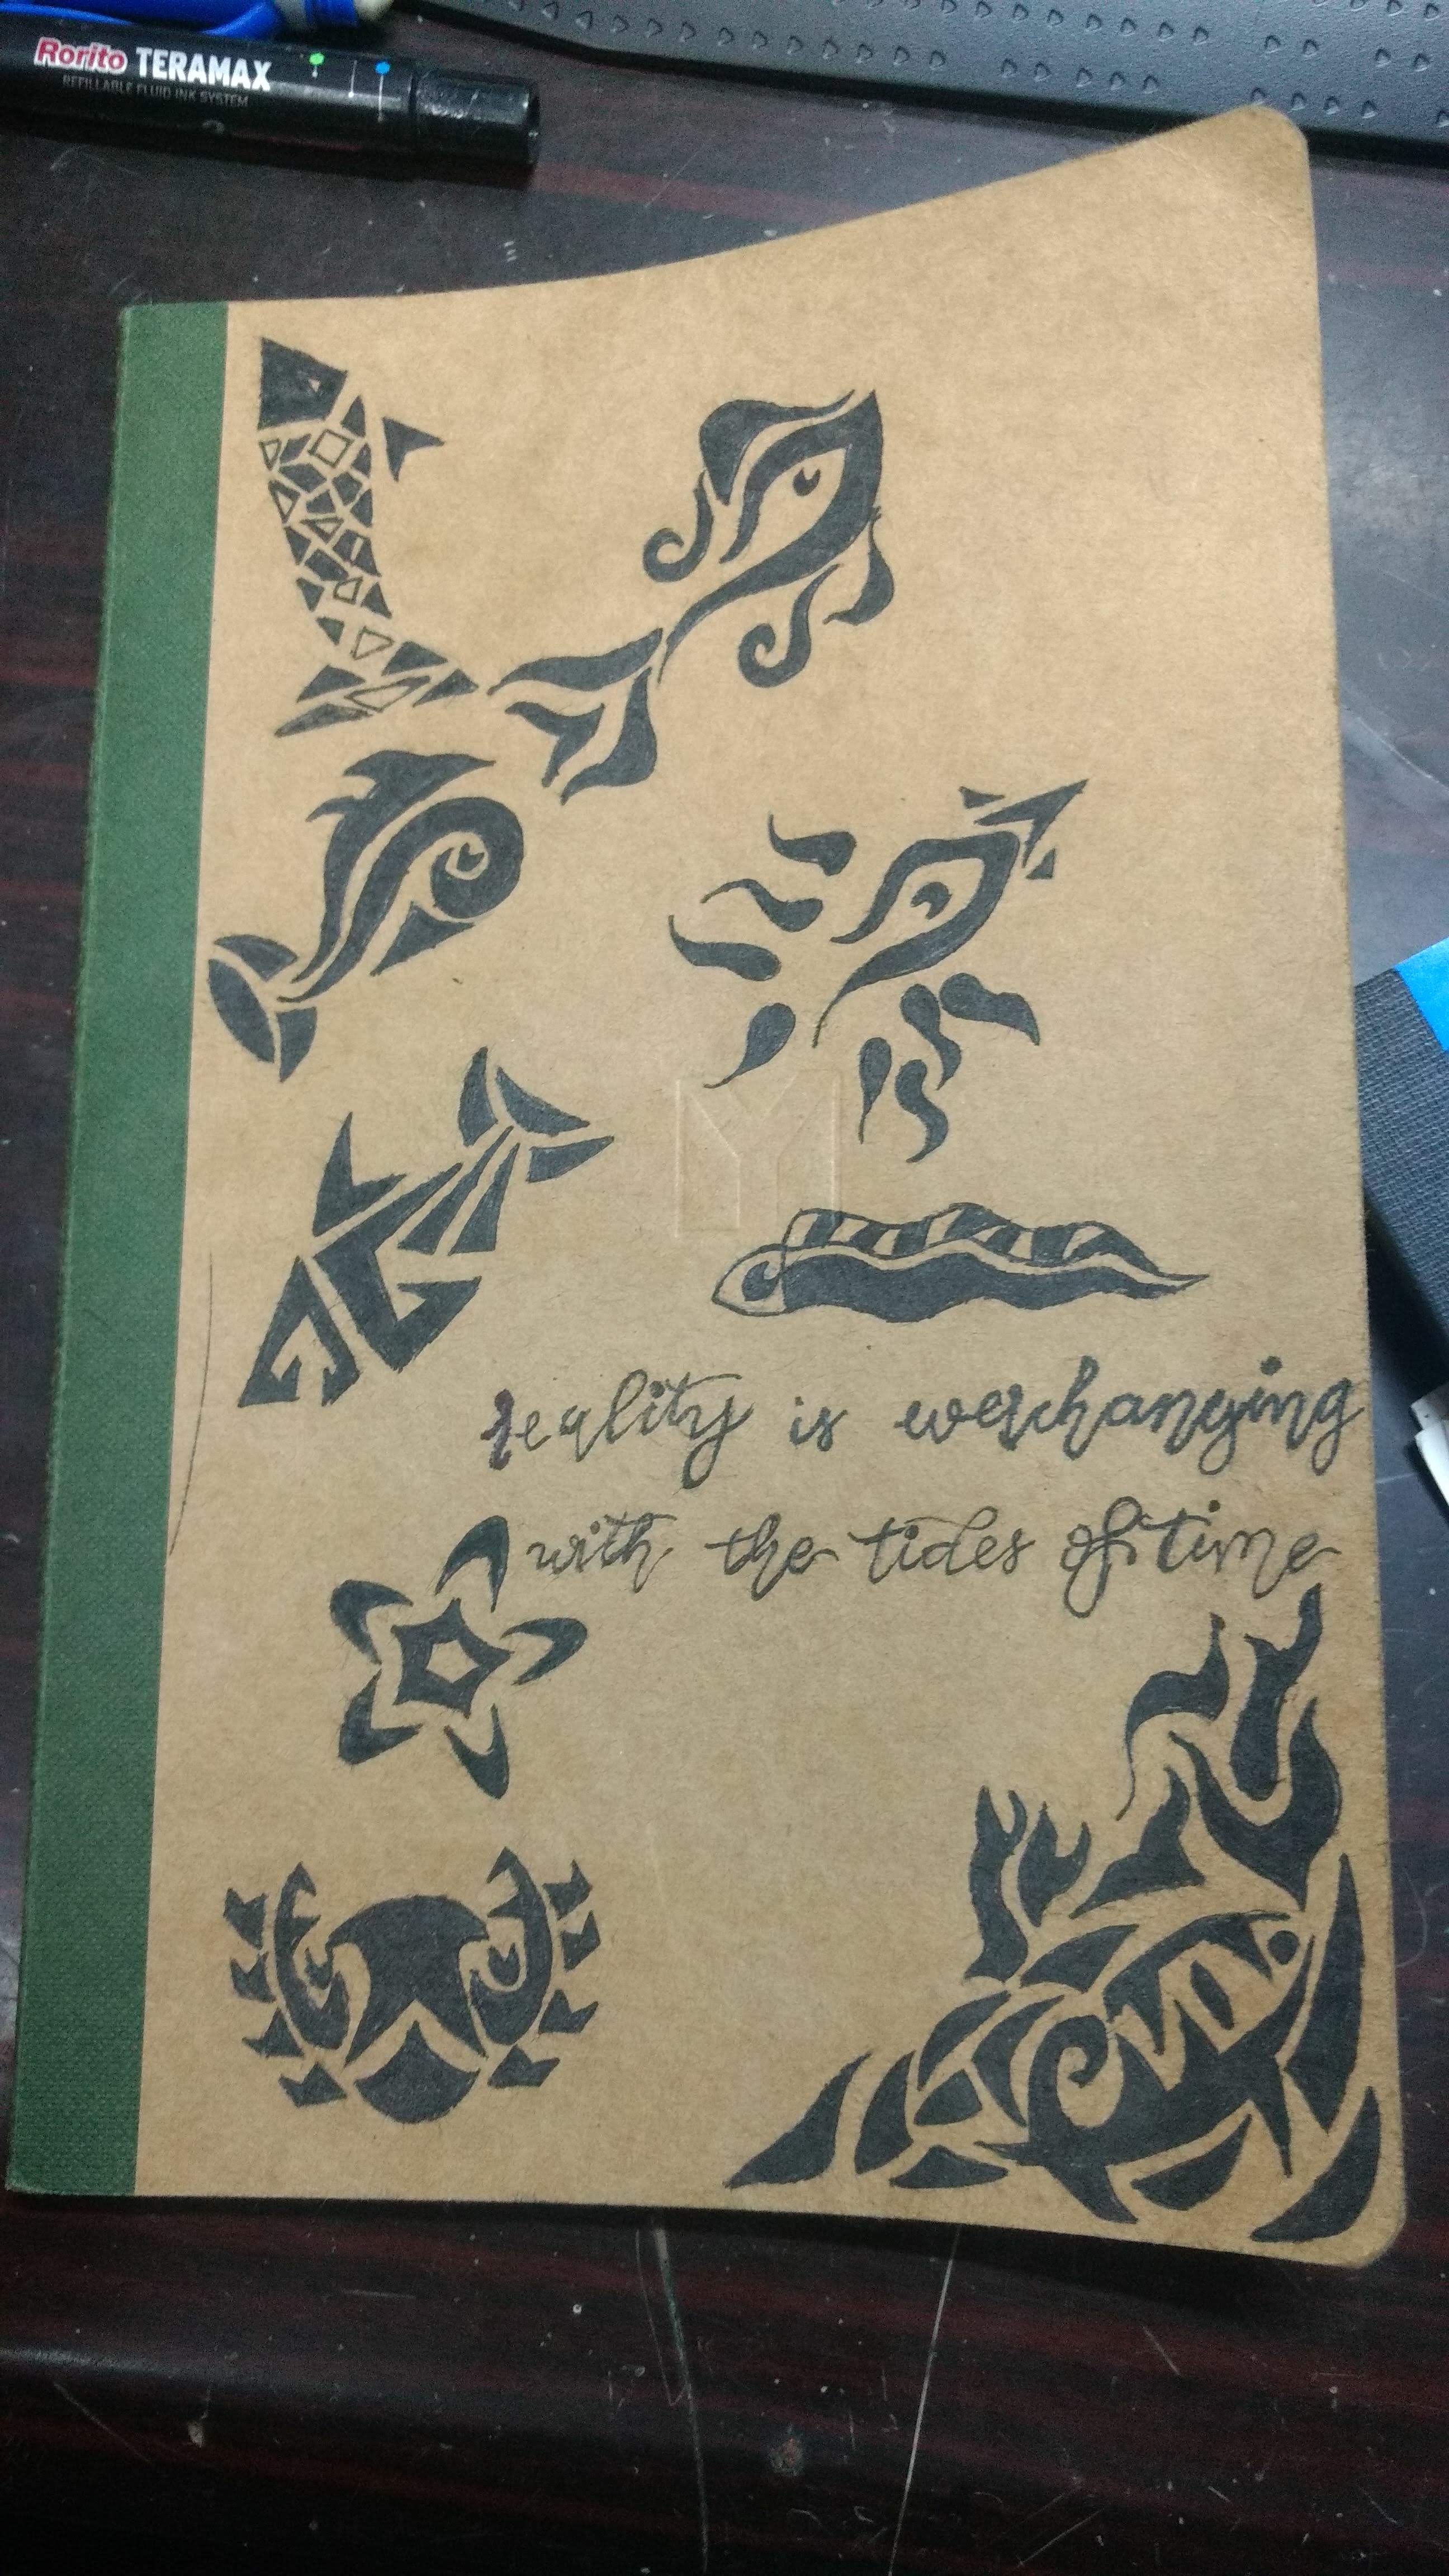 Rorito TERAMAX
REFILLABLE FLUID INK SYSTEM
reality is everchanging
with the tides of time